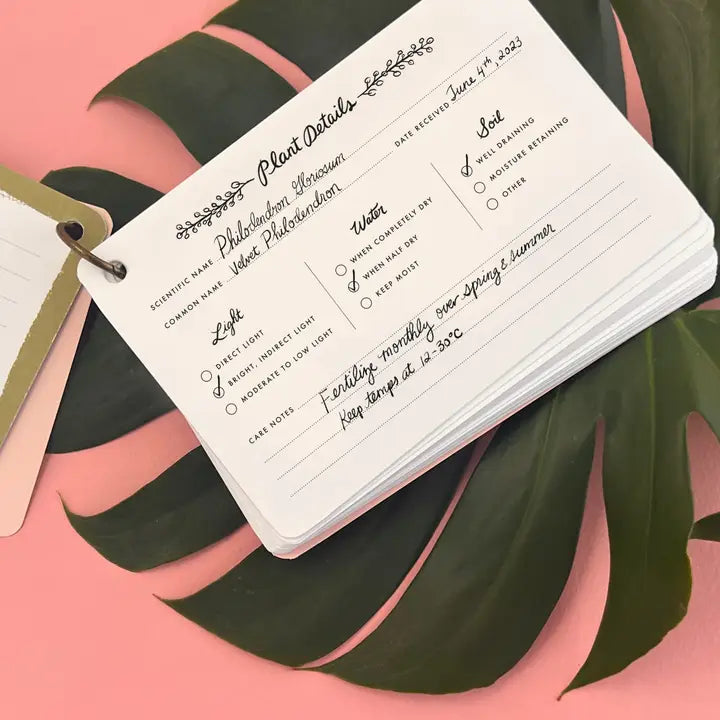 Plant Details
SCIENTIFIC NAME Philodendron Gloriosum
DATE RECEIVED June 4th, 2023
COMMON NAME Velvet Philodendron
Light
DIRECT LIGHT
BRIGHT, INDIRECT LIGHT
MODERATE TO LOW LIGHT
Water
WHEN COMPLETELY DRY
WHEN HALF DRY
KEEP MOIST
Soil
WELL DRAINING
MOISTURE RETAINING
OTHER
CARE NOTES Fertilize monthly over spring & summer
Keep temps at 12-30°C